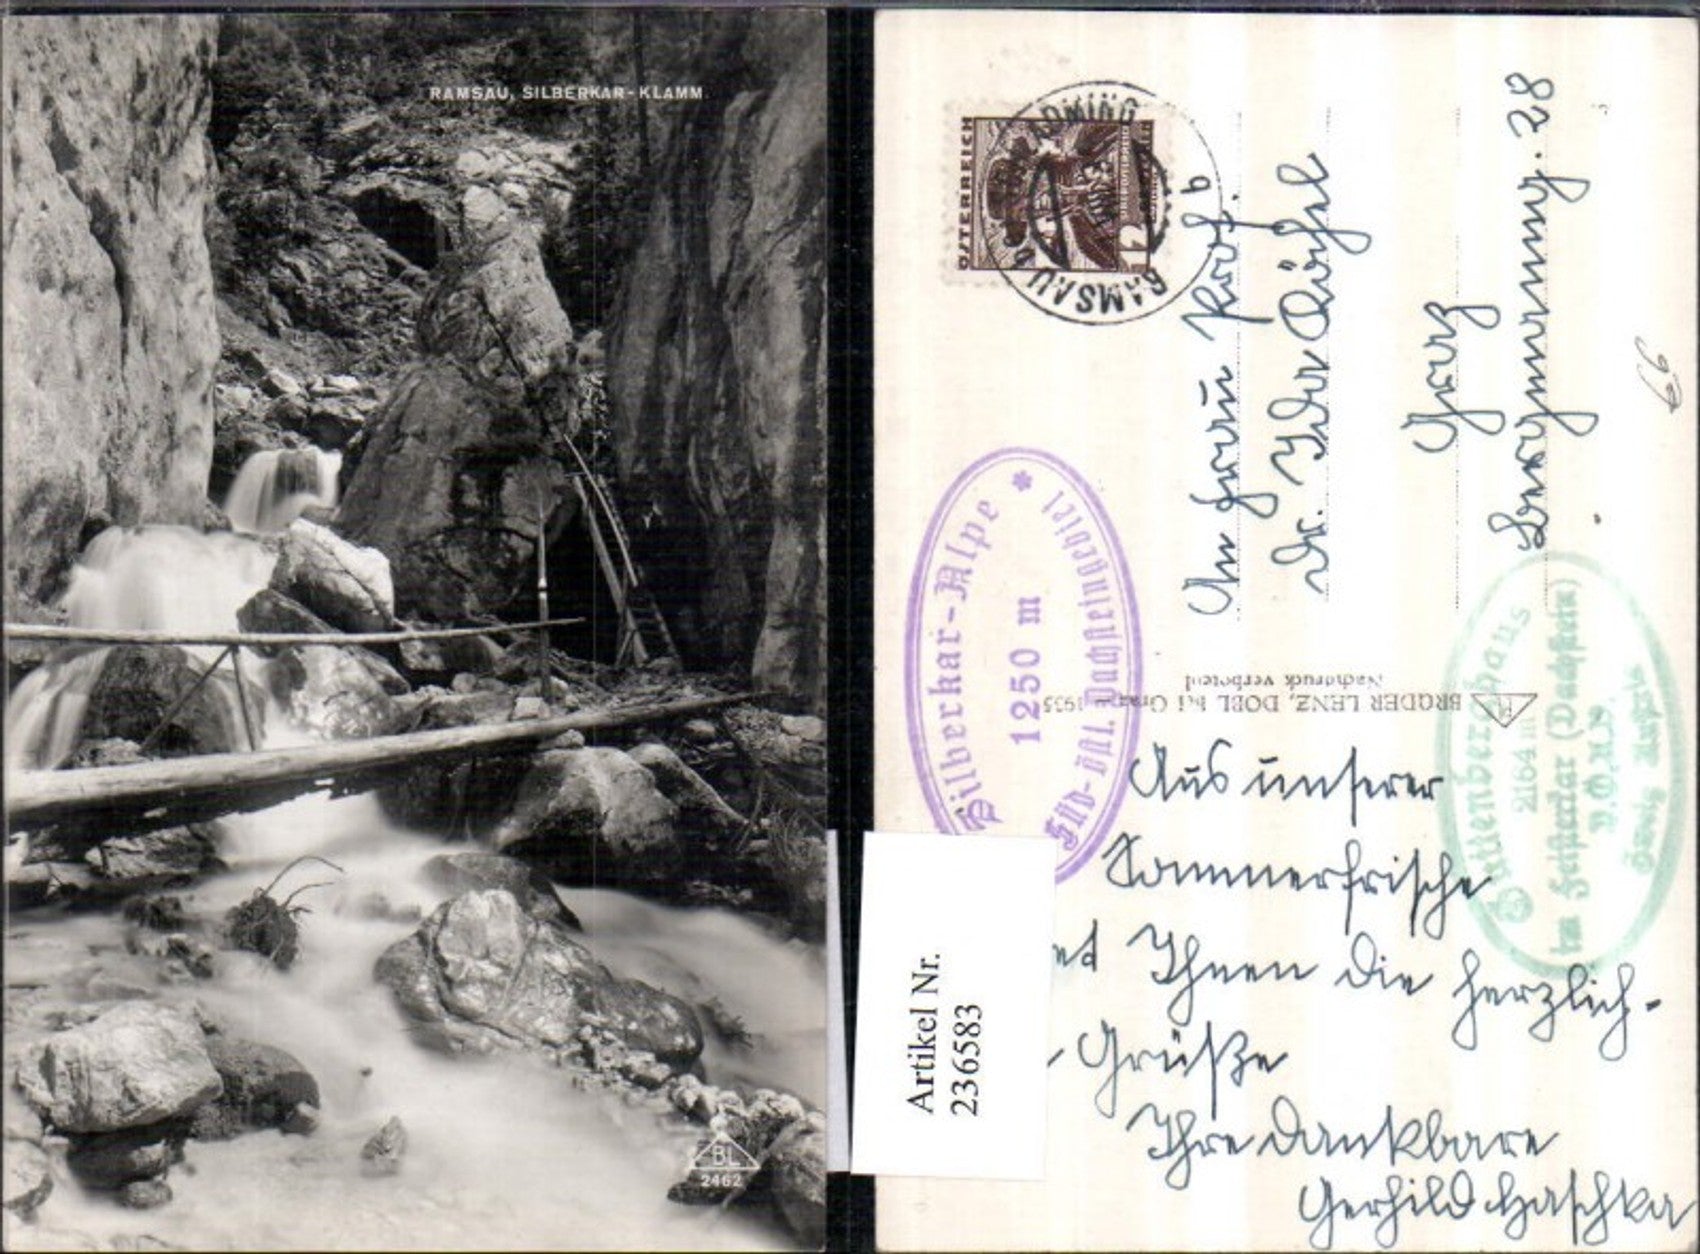 RAMSAU, SILBERKAR-KLAMM
BL
2462
ÖSTERREICH
12
RAMSAU
b
An Frau Prof.
Dr. Ida
Graz
Bergmanng. 28
66
Silberkar-Alpe
1250 m
Süd-östl. Dachsteingebiet
BRÜDER LENZ, DOBL bei Graz 1935
Nachdruck verboten!
Guttenberghaus
2164 m
im Feisterkar (Dachstein)
Aus unserer
Sommerfrische
Ihnen die herzlich-
Grüße
Ihre dankbare
Gerhild Haschka
Artikel Nr.
236583